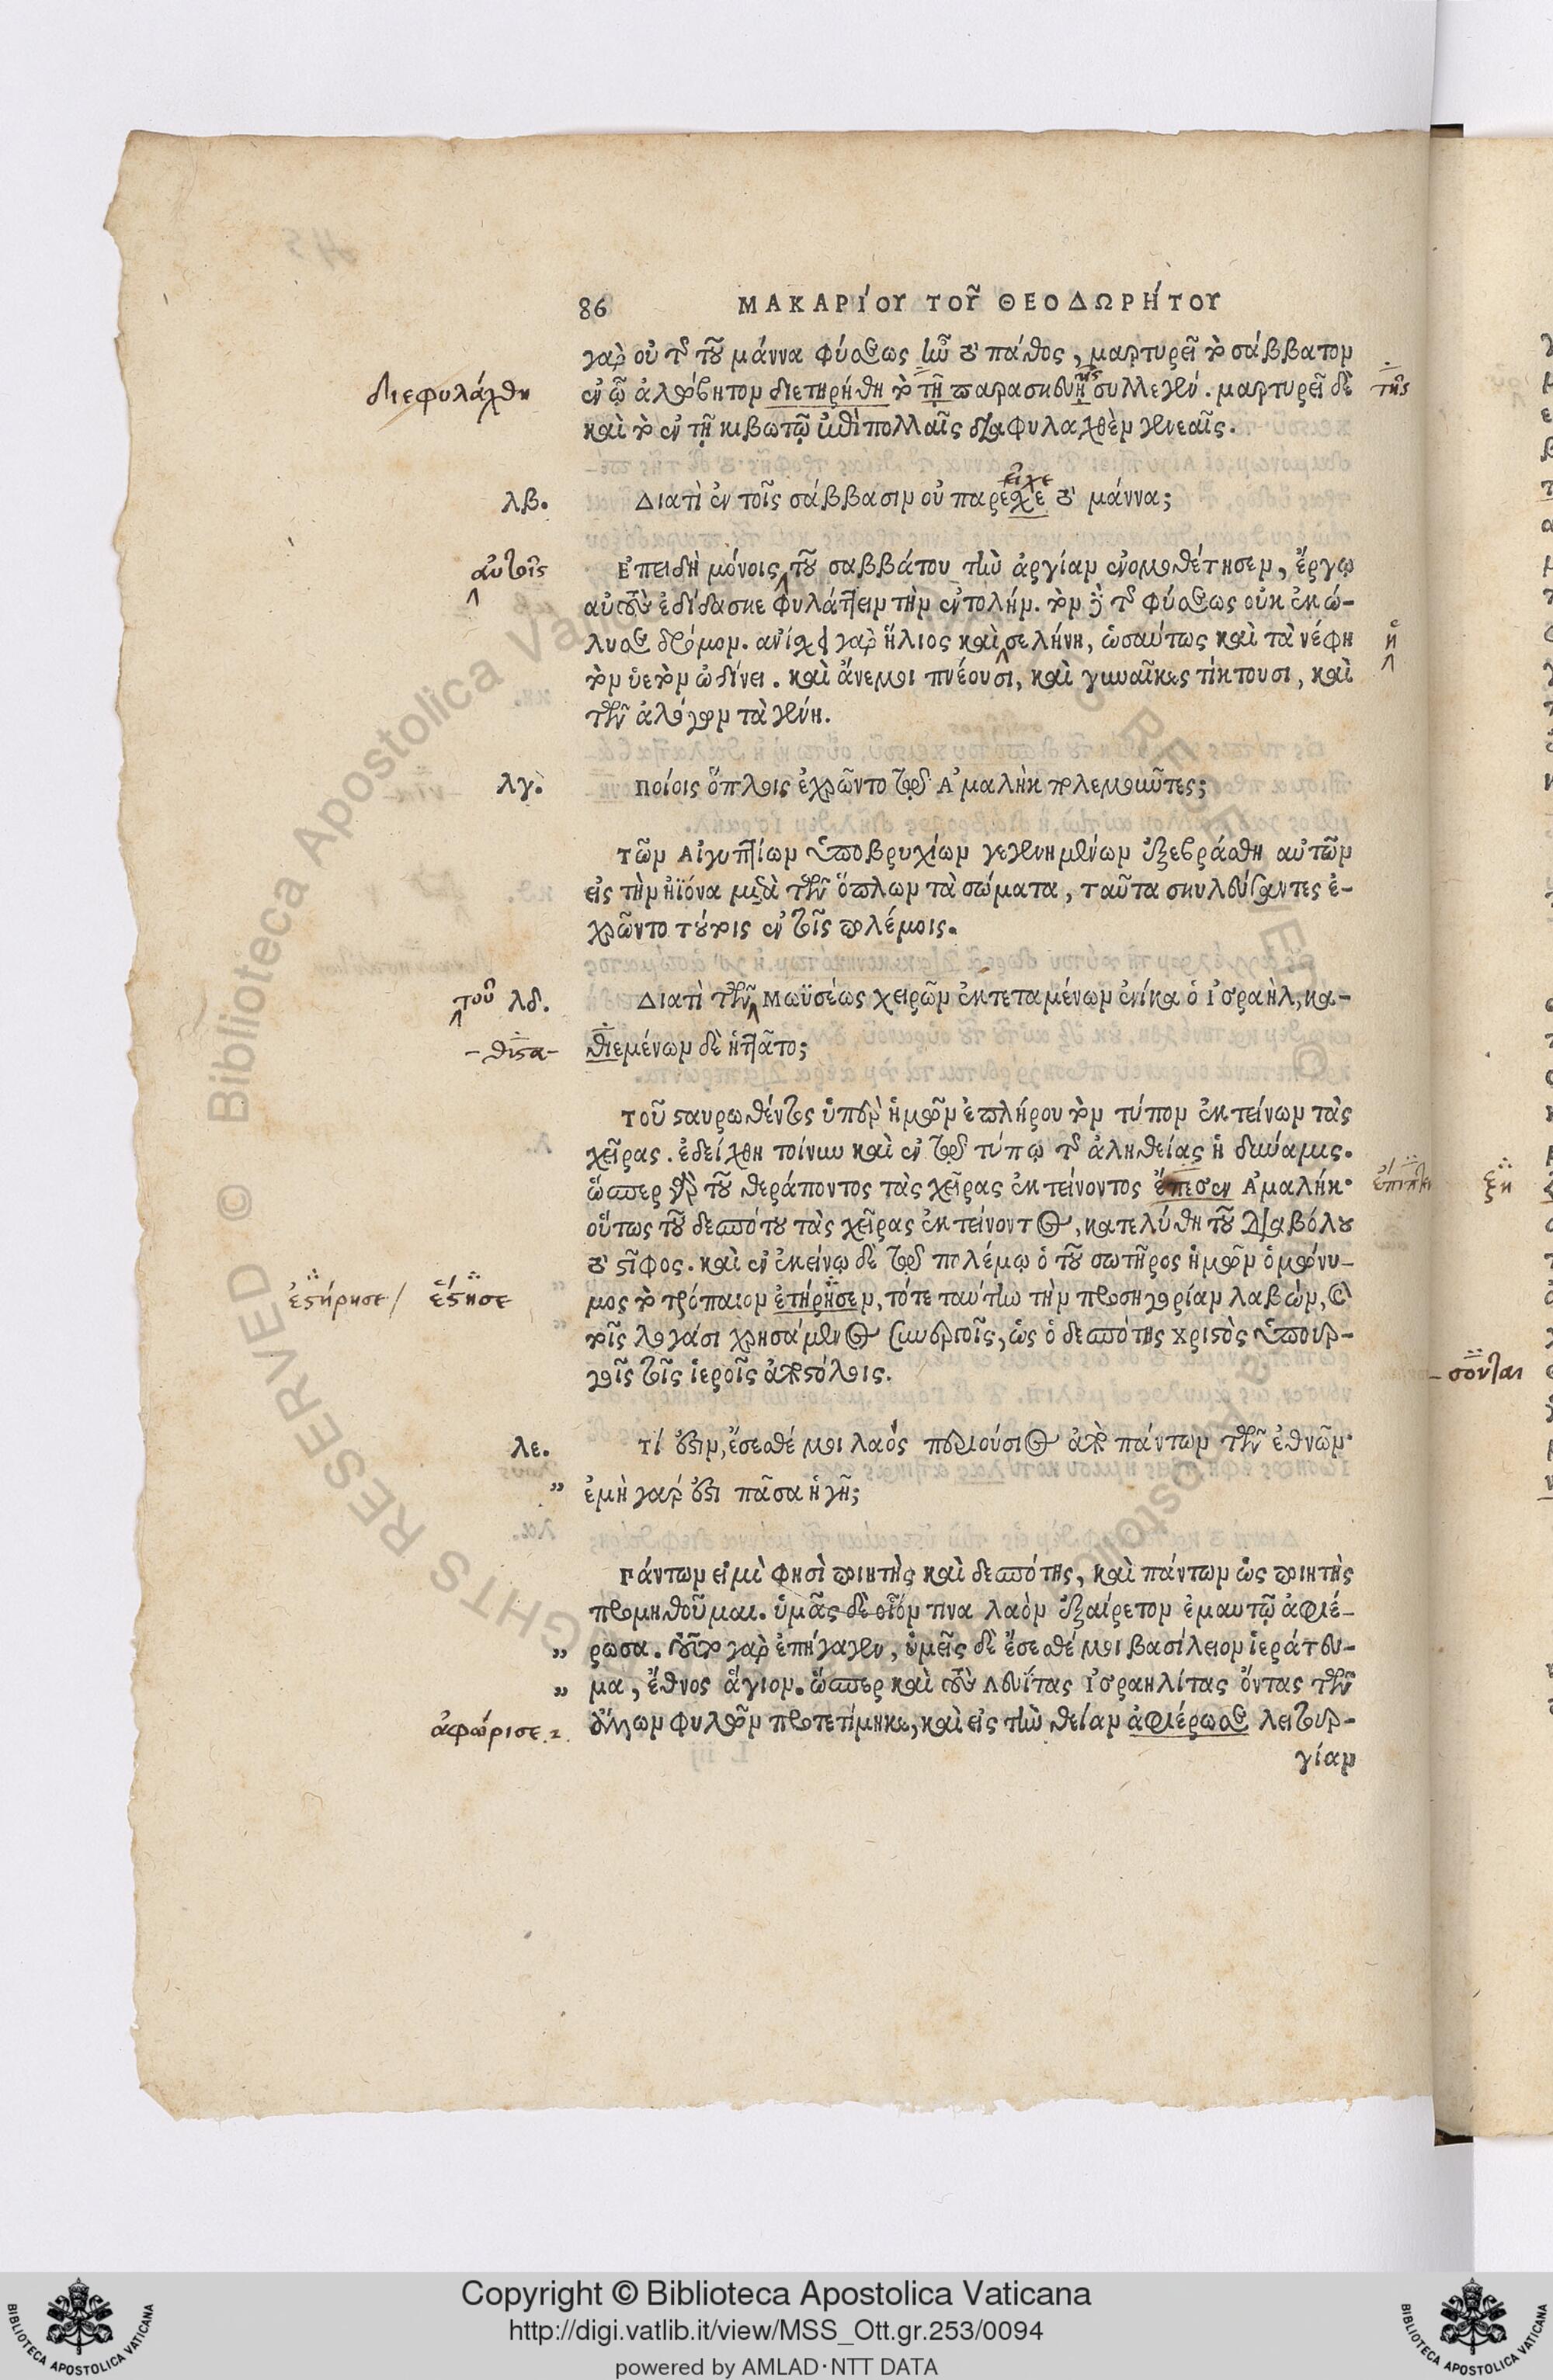 86 ΜΑΚΑΡίΟΥ ΤΟΥ͂ ΘΕΟΔΩΡΉΤΟΥ
γὰρ οὐ τῆς τοῦ μάννα φύσεως ἦν τὸ πάθος, μαρτυρεῖ τὸ σάββατον
διεφυλάχθη
ἐν ᾧ ἀλώβητον διετηρήθη τὸ τῇ παρασκευῇ συλλεγέν. μαρτυρεῖ δὲ
ῆς
τῆς
καὶ τὸ ἐν τῇ κιβωτῷ ἐπὶ πολλαῖς διαφυλαχθὲν γενεαῖς.
εῖχε
λβ. Διατὶ ἐν τοῖς σάββασιν οὐ παρέχε τὸ μάννα;
αὐτοῖς
Επειδὴ μόνοις τοῦ σαββάτου τὴν ἀργίαν ἐνομοθέτησεν, ἔργῳ
αὐτοὺς ἐδίδασκε φυλάττειν τὴν ἐντολήν. τὸν δὲ τῆς φύσεως οὐκ ἐκώ-
λυσε δρόμον. ἀνίσχει γὰρ ἥλιος καὶ σελήνη, ὡσαύτως καὶ τὰ νέφη
ἡ
τὸν ὑετὸν ὠδίνει. καὶ ἄνεμοι πνέουσι, καὶ γυναῖκες τίκτουσι, καὶ
τῶν ἀλόγων τὰ γένη.
λγ. Ποίοις ὅπλοις ἐχρῶντο τῷ Ἀμαλὴκ πολεμοῦντες;
Τῶν Αἰγυπτίων ὑποβρυχίων γεγενημένων ἐξεβράσθη αὐτῶν
εἰς τὴν ἠϊόνα μετὰ τῶν ὅπλων τὰ σώματα, ταῦτα σκυλεύσαντες ἐ-
χρῶντο τούτοις ἐν τοῖς πολέμοις.
τοῦ λδ. Διατὶ τῶν Μωϋσέως χειρῶν ἐκτεταμένων ἐνίκα ὁ Ἰσραὴλ, κα-
-θιστα-
θιεμένων δὲ ἡττᾶτο;
Τοῦ σταυρωθέντος ὑπὲρ ἡμῶν ἐπλήρου τὸν τύπον ἐκτείνων τὰς
χεῖρας. ἐδείχθη τοίνυν καὶ ἐν τῷ τύπῳ τῆς ἀληθείας ἡ δύναμις.
ὥσπερ γὰρ τοῦ θεράποντος τὰς χεῖρας ἐκτείνοντος ἔπεσεν Ἀμαλήκ·
οὕτως τοῦ δεσπότου τὰς χεῖρας ἐκτείνοντος, κατελύθη τοῦ διαβόλου
τὸ στῖφος. καὶ ἐν ἐκείνῳ δὲ τῷ πολέμῳ ὁ τοῦ σωτῆρος ἡμῶν ὁμώνυ-
ἐστήρησε / ἔστησε
μος τὸ τρόπαιον ἐτήρησεν, τότε ταύτην τὴν προσηγορίαν λαβὼν, καὶ
τοῖς λογάσι χρησάμενος συνεργοῖς, ὡς ὁ δεσπότης Χριστὸς ὑπουρ-
γοῖς τοῖς ἱεροῖς ἀποστόλοις.
-σονται
λε. Τί ἐστιν, ἔσεσθέ μοι λαός περιούσιος ἀπὸ πάντων τῶν ἐθνῶν·
„ ἐμὴ γάρ ἐστι πᾶσα ἡ γῆ;
Πάντων εἰμὶ φησὶ ποιητὴς καὶ δεσπότης, καὶ πάντων ὡς ποιητὴς
προμηθοῦμαι. ὑμᾶς δὲ οἷόν τινα λαὸν ἐξαίρετον ἐμαυτῷ ἀφιέ-
„ ρωσα. τοῦτο γὰρ ἐπήγαγεν, ὑμεῖς δὲ ἔσεσθέ μοι βασίλειον ἱεράτευ-
„ μα, ἔθνος ἅγιον. ὥσπερ καὶ τοὺς Λευΐτας Ἰσραηλίτας ὄντας τῶν
ἀφώρισε
ἄλλων φυλῶν προτετίμηκε, καὶ εἰς τὴν θείαν ἀφιέρωσε λειτουρ-
γίαν
Copyright © Biblioteca Apostolica Vaticana
http://digi.vatlib.it/view/MSS_Ott.gr.253/0094
powered by AMLAD·NTT DATA